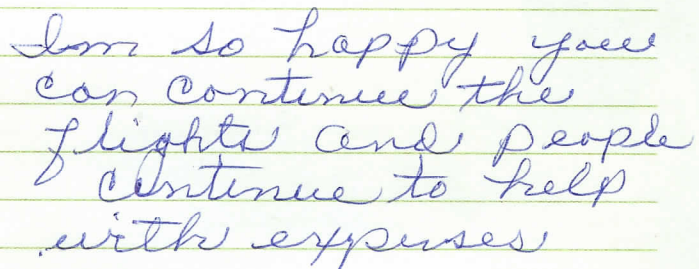 Im so happy you
can continue the
flights and people
continue to help
with expenses